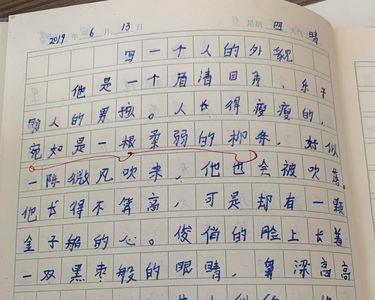 2019年6月13日 星期四 天气晴
写一个人的外貌
他是一个眉清目秀,乐于
助人的男孩。人长得瘦瘦的,
宛如是一根柔弱的柳条,好似
一阵微风吹来,他也会被吹落。
他长得不算高,可是却有一颗
金子般的心。俊俏的脸上长着
一双黑枣般的眼睛,鼻梁高高